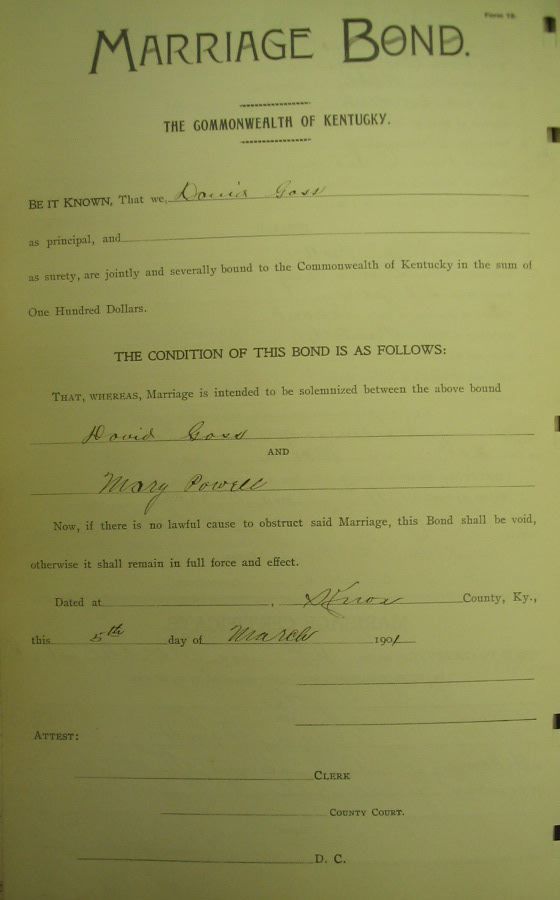 Form 18.
MARRIAGE BOND.
THE COMMONWEALTH OF KENTUCKY.
BE IT KNOWN, That we, David Goss
as principal, and
as surety, are jointly and severally bound to the Commonwealth of Kentucky in the sum of
One Hundred Dollars.
THE CONDITION OF THIS BOND IS AS FOLLOWS:
THAT, WHEREAS, Marriage is intended to be solemnized between the above bound
David Goss
AND
Mary Powell
Now, if there is no lawful cause to obstruct said Marriage, this Bond shall be void,
otherwise it shall remain in full force and effect.
Dated at , Knox County, Ky.,
this 5th day of March 1901
ATTEST:
CLERK
COUNTY COURT.
D. C.